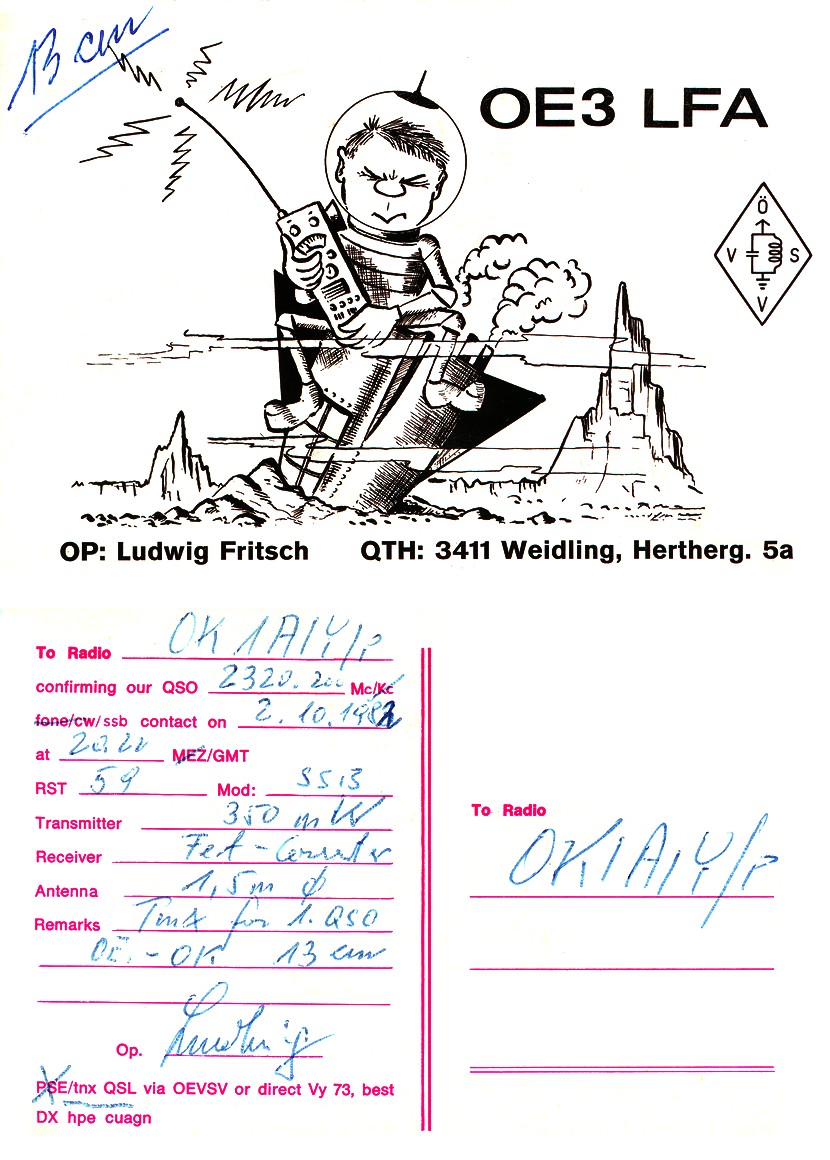 13 cm
OE3 LFA
Ö
V S
V
OP: Ludwig Fritsch QTH: 3411 Weidling, Hertherg. 5a
To Radio OK1AIY/P
confirming our QSO 2320.200 Mc/Kc
fone/cw/ssb contact on 2.10.1982
at 20.20 MEZ/GMT
RST 59 Mod: SSB
Transmitter 350 mW
Receiver Fet-Converter
Antenna 1,5m Ø
Remarks Tnx for 1. QSO
OE - OK 13 cm
Op. Ludwig
PSE/tnx QSL via OEVSV or direct Vy 73, best
DX hpe cuagn
To Radio
OK1AIY/P